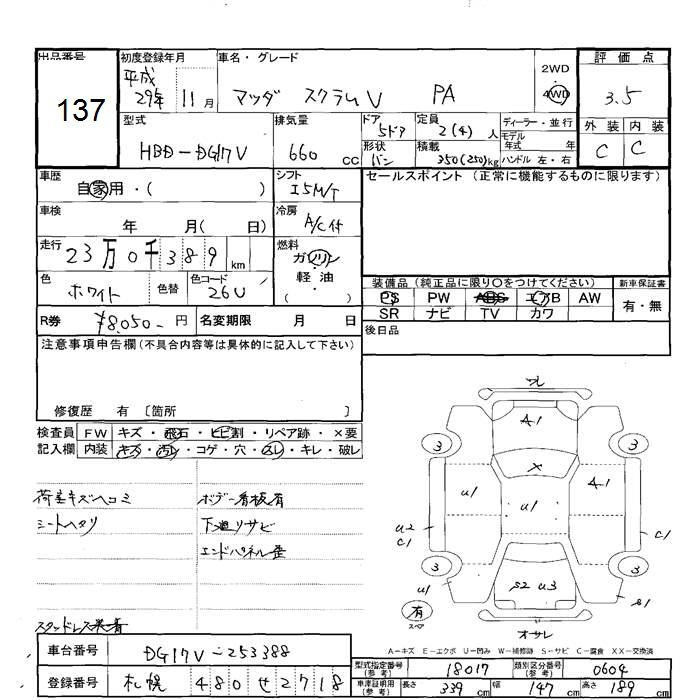 出品番号 初度登録年月 車名・グレード 2WD 評価点
137 平成 29年 11月 マツダ スクラムV PA 4WD 3.5
型式 排気量 ドア 定員 ディーラー・並行 外装 内装
HBD-DG17V 660cc 5ドア 2(4)人 モデル年式 年 C C
形状 積載 ハンドル 左・右
バン 350(250)kg
車歴 シフト セールスポイント (正常に機能するものに限ります)
自家用・( ) I5M/T
車検 冷房
年 月( 日) A/C付
走行 燃料
23万0千389km ガソリン・軽油・( )
色 色替 色コード 装備品 (純正品に限り○をつけてください) 新車保証書
ホワイト 26U PS PW ABS エアB AW 有・無
SR ナビ TV カワ
R券 ¥8,050-円 名変期限 月 日 後日品
注意事項申告欄(不具合内容等は具体的に記入して下さい)
修復歴 有 〔箇所 〕
検査員 FW キズ・飛石・ヒビ割・リペア跡・×要
記入欄 内装 キズ・汚レ・コゲ・穴・スレ・キレ・破レ
荷室キズヘコミ ボデー看板有
シートヘタリ 下廻リサビ
エンドパネル歪
スタッドレス装着
ワレ
A1
3 3
X
U1 A1
U1
U2
C1 C1
3 3
S2 U3
U1 S1
有
スペア
オサレ
A-キズ E-エクボ U-凹み W-補修跡 S-サビ C-腐食 XX-交換済
車台番号 DG17V-253388
登録番号 札幌 480せ2718
型式指定番号(参考) 18017 類別区分番号(参考) 0604
車庫証明用(参考) 長さ 339cm 幅 147cm 高さ 189cm